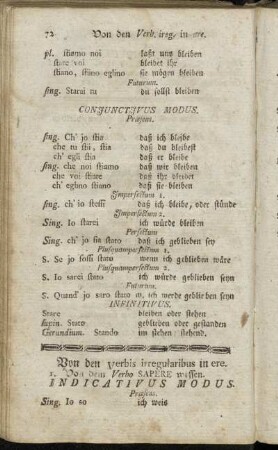 72 Von den Verb. irreg. in ere.
pl. stiamo noi laßt uns bleiben
state voi bleibet ihr
stiano, stieno eglino sie mögen bleiben
Futurum.
sing. Starai tu du sollst bleiben
CONJUNCTIVUS MODUS.
Præsens.
sing. Ch' jo stia daß ich bleibe
che tu stii, stia daß du bleibest
ch' egli stia daß er bleibe
sing. che noi stiamo daß wir bleiben
che voi stiate daß ihr bleibet
ch' eglino stiano daß sie bleiben
Imperfectum 1.
sing. ch' jo stessi daß ich bleibe, oder stünde
Imperfectum 2.
Sing. Io starei ich würde bleiben
Perfectum
Sing. ch' jo sia stato daß ich geblieben sey
Plusquamperfectum 1.
S. Se jo fossi stato wenn ich geblieben wäre
Plusquamperfectum 2.
S. Io sarei stato ich würde geblieben seyn
Futurum.
S. Quand' jo saro stato w. ich werde geblieben seyn
INFINITIVUS.
Stare bleiben oder stehen
Supin. Stato geblieben oder gestanden
Gerundium. Stando im stehen stehend.
Von den verbis irregularibus in ere.
1. Von dem Verbo SAPERE wissen.
INDICATIVUS MODUS.
Præsens.
Sing. Io so ich weis